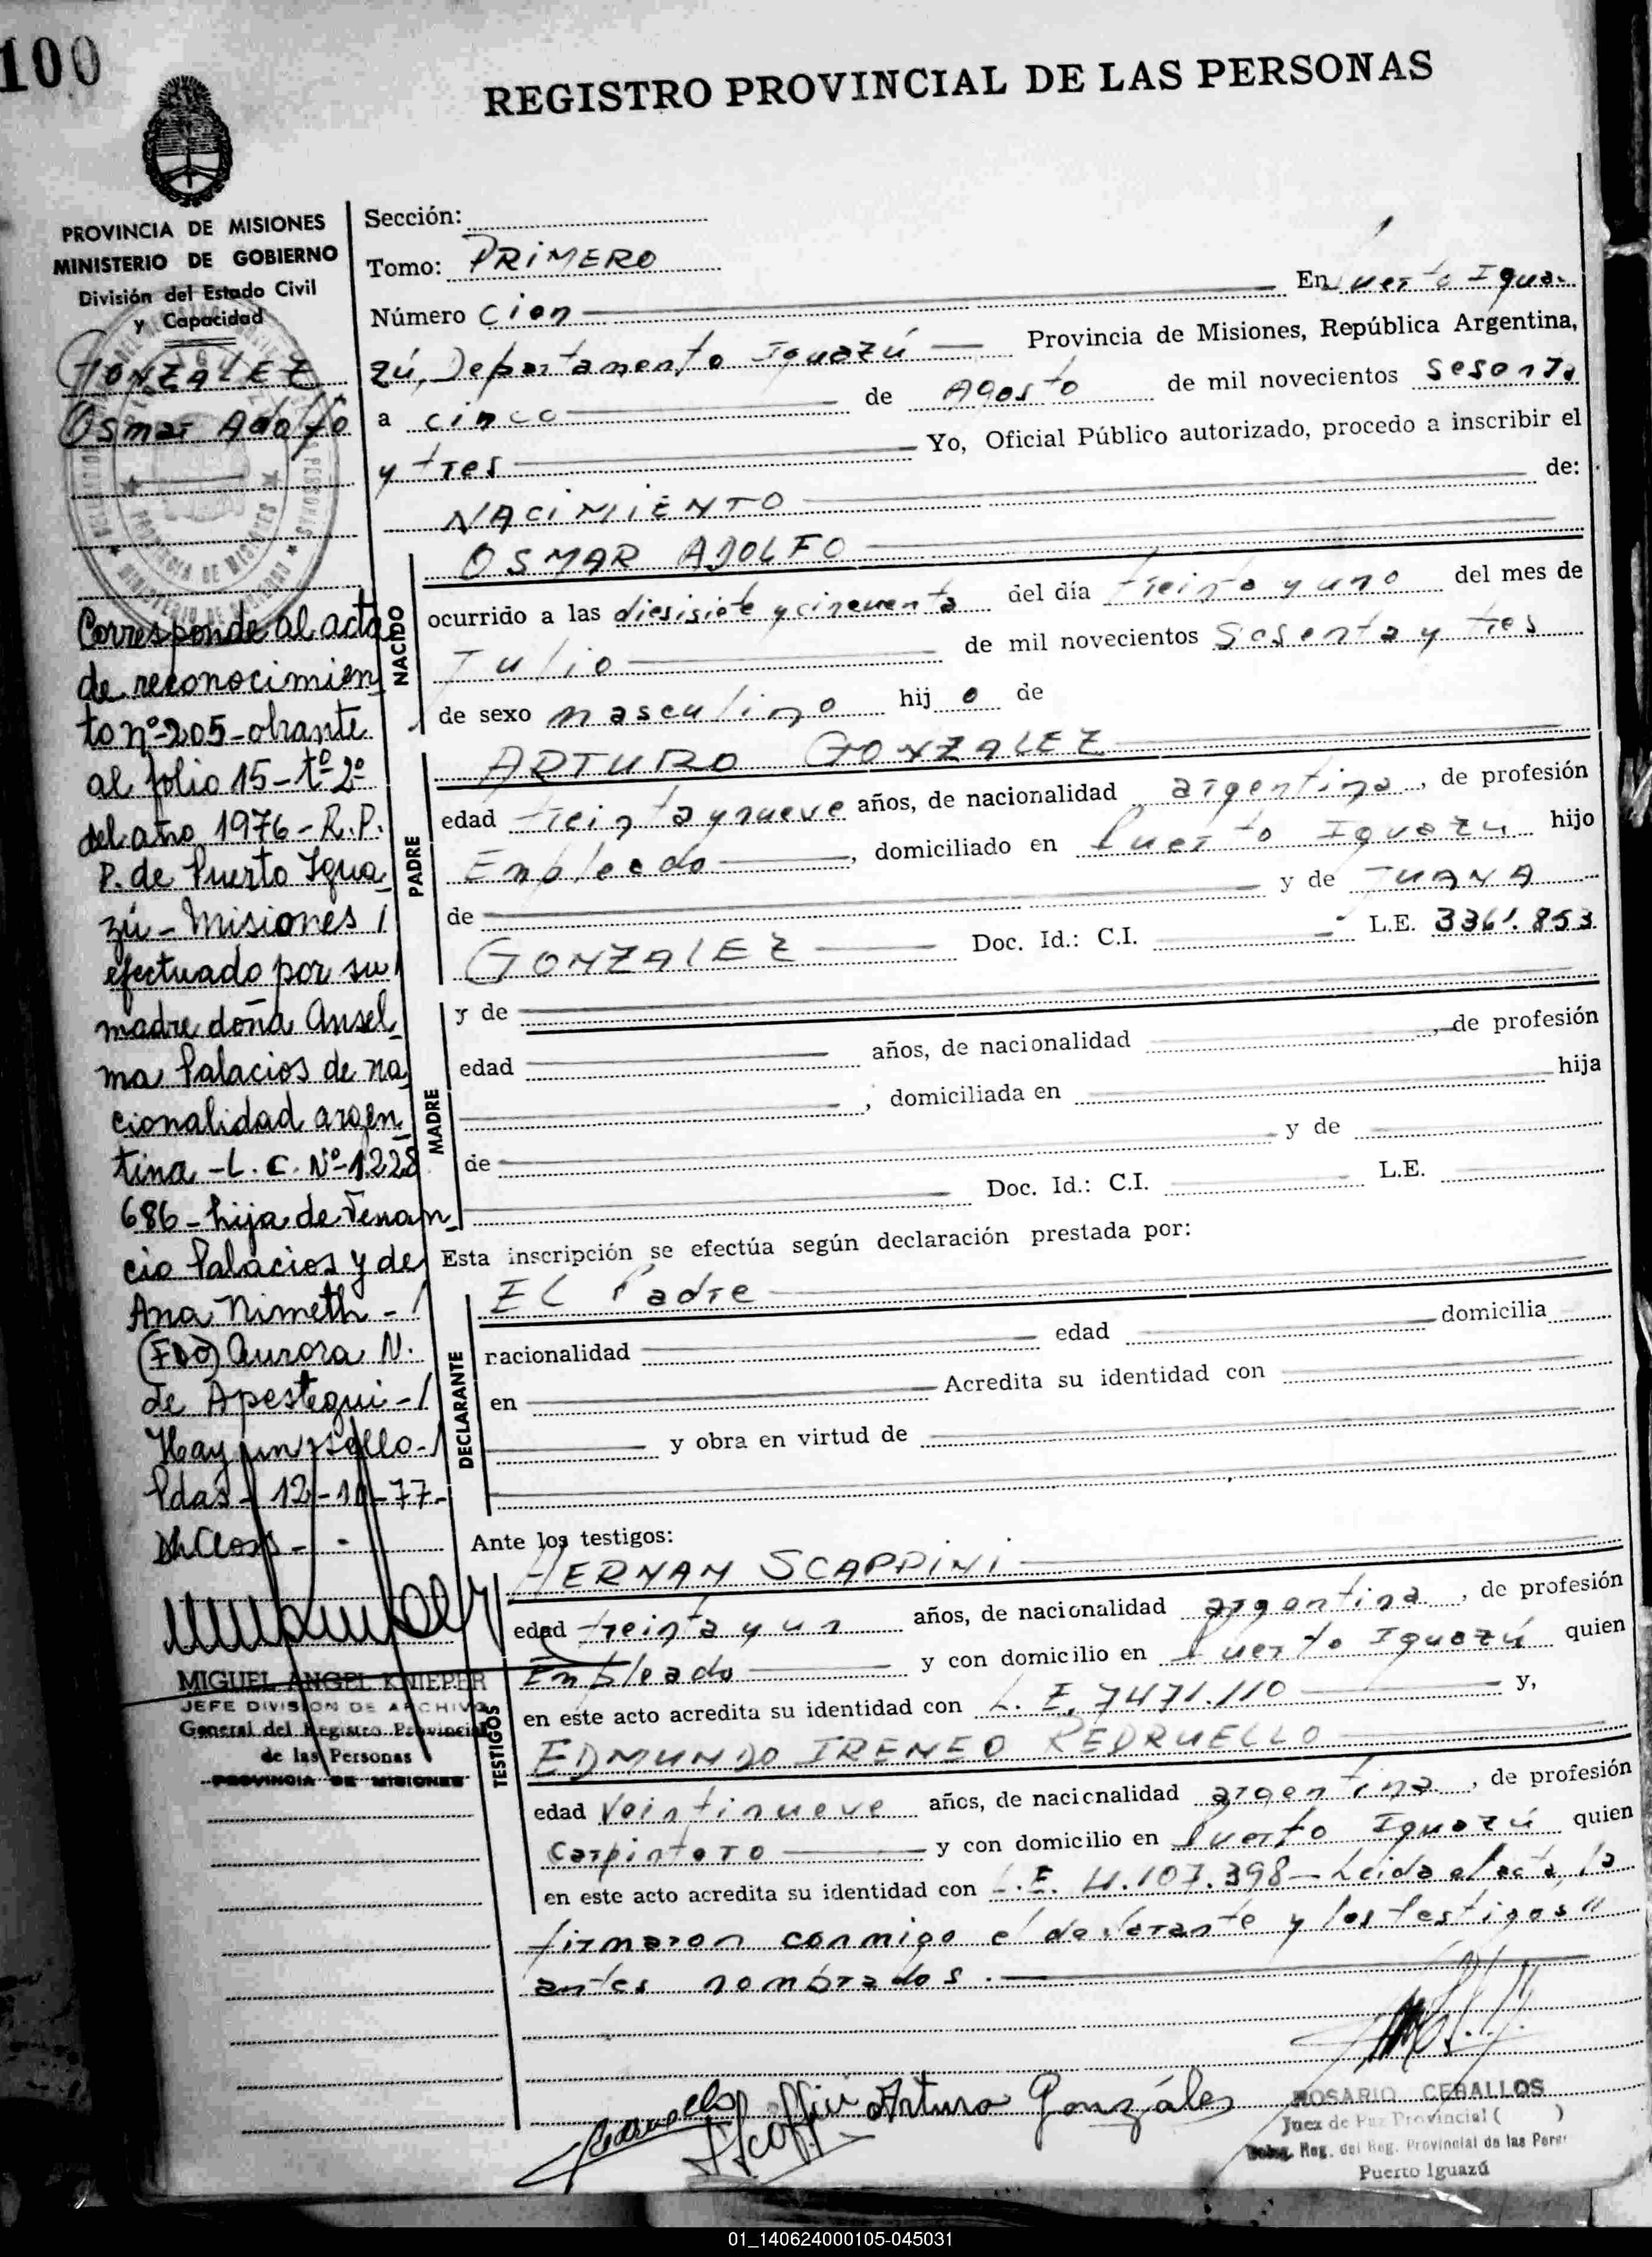 100
REGISTRO PROVINCIAL DE LAS PERSONAS
PROVINCIA DE MISIONES
MINISTERIO DE GOBIERNO
División del Estado Civil
y Capacidad
GONZALEZ
Osmar Adolfo
Corresponde al acta
de reconocimien
to nº-205-obrante
al folio 15-tº-2º
del año 1976-R.P.
P. de Puerto Igua
zú-Misiones/
efectuado por su
madre doña Ansel
ma Palacios de na
cionalidad argen
tina-L.C. Nº-1.228
686-hija de Venan
cio Palacios y de
Ana Nimeth-/
(FDO) Aurora N.
de Apestegui-/
Hay un sello-/
Pdas-12-10-77-
MIGUEL ANGEL KNIEPER
JEFE DIVISION DE ARCHIVO
General del Registro Provincial
de las Personas
PROVINCIA DE MISIONES
Sección:
Tomo: PRIMERO
Número Cien En Puerto Igua-
zú, Departamento Iguazú Provincia de Misiones, República Argentina,
a cinco de Agosto de mil novecientos sesenta
y tres Yo, Oficial Público autorizado, procedo a inscribir el
NACIMIENTO de:
NACIDO
OSMAR ADOLFO
ocurrido a las diesisiete y cincuenta del día treinta y uno del mes de
Julio de mil novecientos Sesenta y tres
de sexo masculino hijo de
PADRE
ARTURO GONZALEZ
edad treinta y nueve años, de nacionalidad argentina, de profesión
Empleado, domiciliado en Puerto Iguazú hijo
de y de JUANA
GONZALEZ Doc. Id.: C.I. L.E. 3361.853
MADRE
y de
edad años, de nacionalidad , de profesión
, domiciliada en hija
de y de
Doc. Id.: C.I. L.E.
Esta inscripción se efectúa según declaración prestada por:
DECLARANTE
EL Padre
nacionalidad edad domicilia
en Acredita su identidad con
y obra en virtud de
Ante los testigos:
TESTIGOS
HERNAN SCAPPINI
edad treinta y un años, de nacionalidad argentina, de profesión
Empleado y con domicilio en Puerto Iguazú quien
en este acto acredita su identidad con L.E. 7471.110 y,
EDMUNDO IRENEO REDRUELLO
edad Veintinueve años, de nacionalidad argentina, de profesión
Carpintero y con domicilio en Puerto Iguazú quien
en este acto acredita su identidad con L.E. 4.107.398-Leida el acta, la
firmaron conmigo el declarante y los testigos
antes nombrados.
Arturo Gonzáles
ROSARIO CEBALLOS
Juez de Paz Provincial ( )
Reg. del Reg. Provincial de las Pers.
Puerto Iguazú
01_140624000105-045031